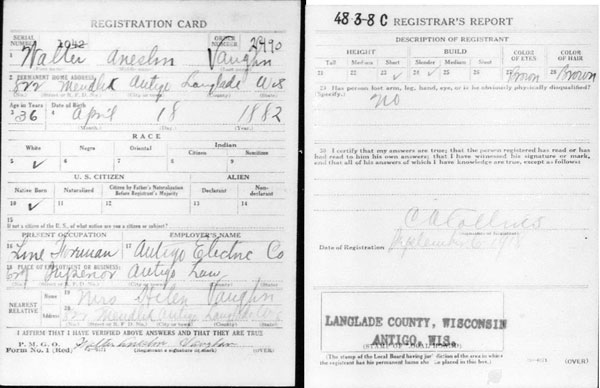 REGISTRATION CARD
SERIAL NUMBER 1042 ORDER NUMBER 2490
1 Walter Vaughn
2 PERMANENT HOME ADDRESS:
822 Antigo Langlade Wis
(No.) (Street or R. F. D. No.) (City or town) (County) (State)
Age in Years Date of Birth
3 36 4 April 18 1882
(Month.) (Day.) (Year.)
RACE
White Negro Oriental Indian
Citizen Noncitizen
5 ✓ 6 7 8 9
U. S. CITIZEN ALIEN
Native Born Naturalized Citizen by Father's Naturalization Before Registrant's Majority Declarant Non-declarant
10 ✓ 11 12 13 14
15
If not a citizen of the U. S., of what nation are you a citizen or subject?
PRESENT OCCUPATION EMPLOYER'S NAME
16 Line Foreman 17 Antigo Electric Co
18 PLACE OF EMPLOYMENT OR BUSINESS:
Superior Antigo
(No.) (Street or R. F. D. No.) (City or town) (County) (State)
NEAREST RELATIVE
Name 19 Mrs Helen Vaughn
Address 20 822 Antigo
(No.) (Street or R. F. D. No.) (City or town) (County) (State)
I AFFIRM THAT I HAVE VERIFIED ABOVE ANSWERS AND THAT THEY ARE TRUE
P. M. G. O.
Form No. 1 (Red) Walter Vaughn
(Registrant's signature or mark) (OVER)
48-3-8 C REGISTRAR'S REPORT
DESCRIPTION OF REGISTRANT
HEIGHT BUILD COLOR OF EYES COLOR OF HAIR
Tall Medium Short Slender Medium Stout
21 22 23 ✓ 24 ✓ 25 26 27 Brown 28 Brown
29 Has person lost arm, leg, hand, eye, or is he obviously physically disqualified?
(Specify.) no
30 I certify that my answers are true; that the person registered has read or has had read to him his own answers; that I have witnessed his signature or mark, and that all of his answers of which I have knowledge are true, except as follows:
C A Collins
Date of Registration September
LANGLADE COUNTY, WISCONSIN
ANTIGO, WIS.
(STAMP OF LOCAL BOARD)
(The stamp of the Local Board having jurisdiction of the area in which the registrant has his permanent home shall be placed in this box.)
(OVER)